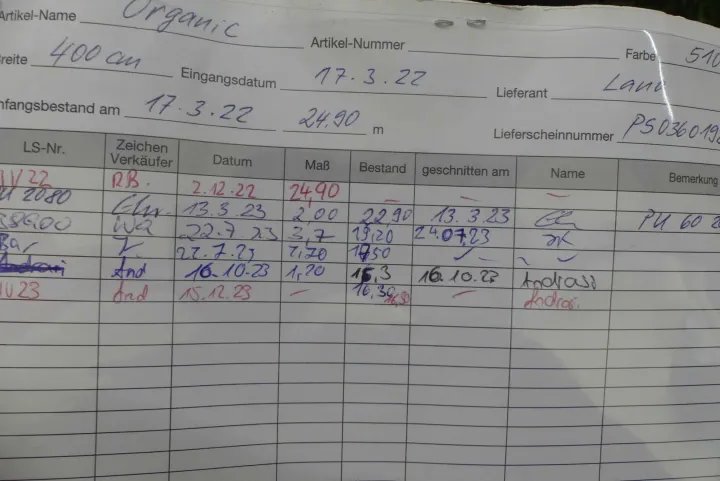 Artikel-Name Organic Artikel-Nummer Farbe 510
Breite 400 cm Eingangsdatum 17.3.22 Lieferant
nfangsbestand am 17.3.22 24,90 m Lieferscheinnummer PS036019
LS-Nr. Zeichen Verkäufer Datum Maß Bestand geschnitten am Name Bemerkung
IV 22 RB. 2.12.22 24,90 — — —
2080 13.3.23 2,00 22,90 13.3.23 PU 60 20
22.7.23 3,7 19,20 24.07.23
Bar 1,70 1750
And 16.10.23 1,20 16,3 16.10.23 Andras
IV 23 And 15.12.23 — 16,30 16,30 — Andras.